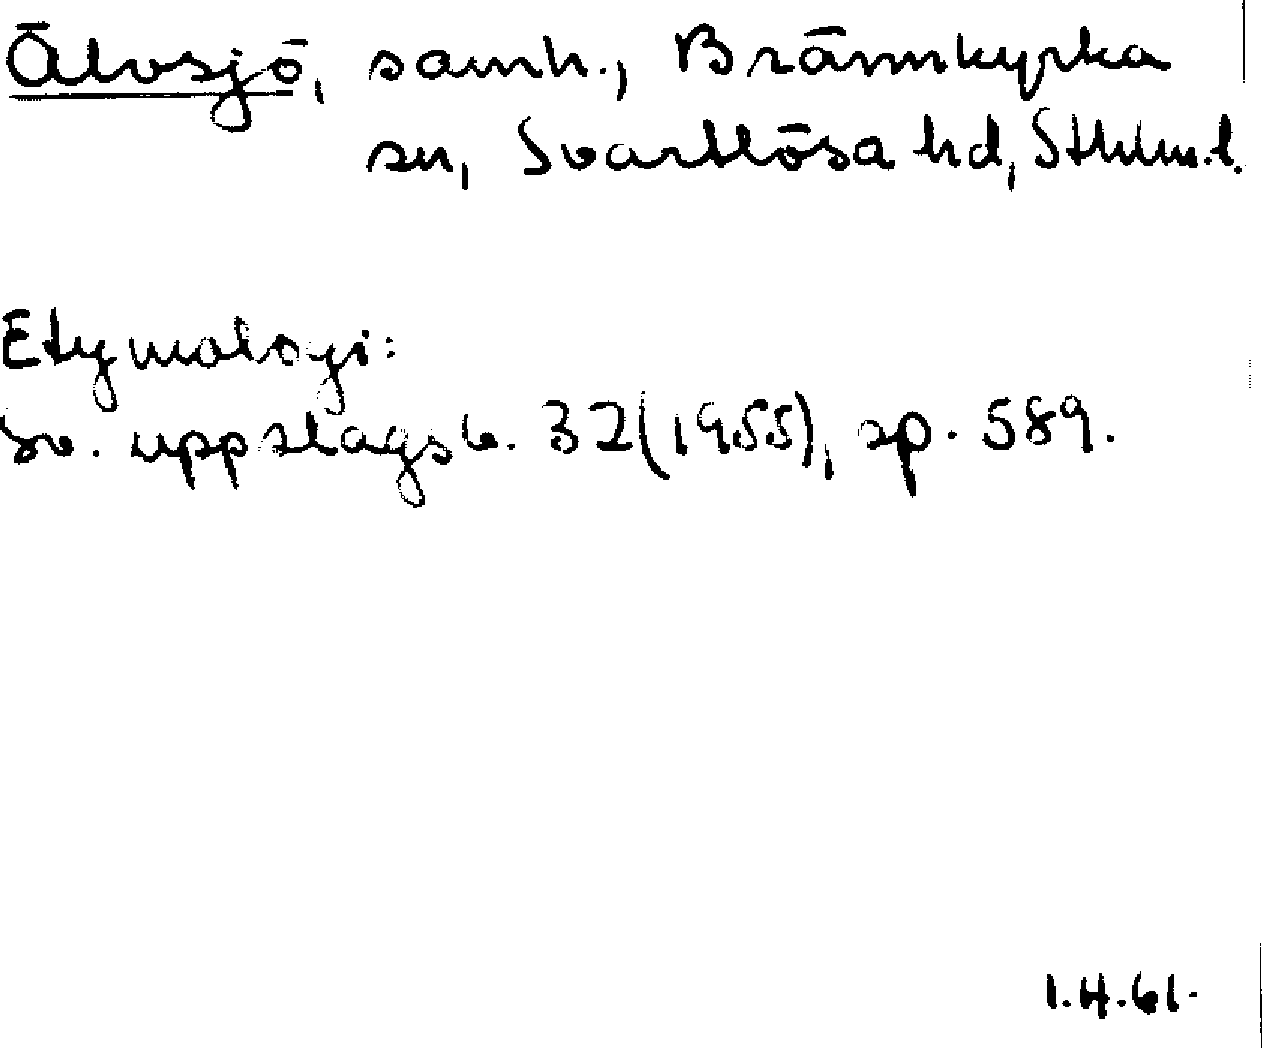 Älvsjö, samh., Brännkyrka
sn, Svartlösa hd, Sthlm.l.
Etymologi:
Sv. uppslagsb. 32(1955), sp. 589.
1.4.61.